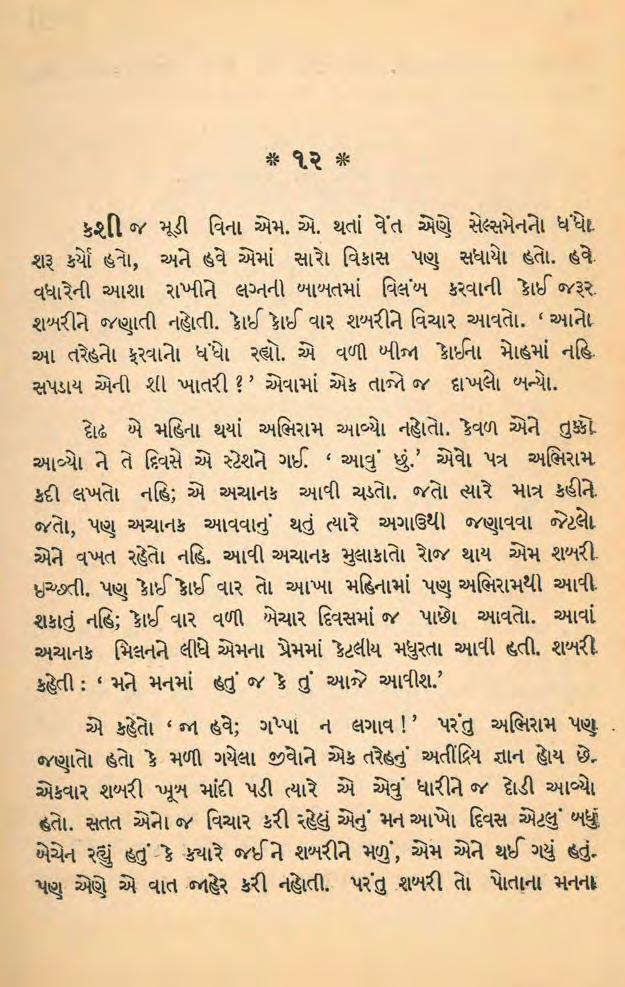 * ૧૨ *
કશી જ મૂડી વિના એમ. એ. થતાં વેંત એણે સેલ્સમેનનો ધંધો
શરૂ કર્યો હતો, અને હવે એમાં સારો વિકાસ પણ સધાયો હતો. હવે
વધારેની આશા રાખીને લગ્નની બાબતમાં વિલંબ કરવાની કોઈ જરૂર
શબરીને જણાતી નહોતી. કોઈ કોઈ વાર શબરીને વિચાર આવતો. ‘ આનો
આ તરેહનો ફરવાનો ધંધો રહ્યો. એ વળી બીજા કોઈના મોહમાં નહિ
સપડાય એની શી ખાતરી ? ’ એવામાં એક તાજો જ દાખલો બન્યો.
દોઢ બે મહિના થયાં અભિરામ આવ્યો નહોતો. કેવળ એને તુક્કો
આવ્યો ને તે દિવસે એ સ્ટેશને ગઈ. ‘ આવું છું.’ એવો પત્ર અભિરામ
કદી લખતો નહિ; એ અચાનક આવી ચડતો. જતો ત્યારે માત્ર કહીને
જતો, પણ અચાનક આવવાનું થતું ત્યારે અગાઉથી જણાવવા જેટલો
એને વખત રહેતો નહિ. આવી અચાનક મુલાકાતો રોજ થાય એમ શબરી
ઇચ્છતી. પણ કોઈ કોઈ વાર તો આખા મહિનામાં પણ અભિરામથી આવી
શકાતું નહિ; કોઈ વાર વળી બેચાર દિવસમાં જ પાછો આવતો. આવાં
અચાનક મિલનને લીધે એમના પ્રેમમાં કેટલીય મધુરતા આવી હતી. શબરી
કહેતી : ‘ મને મનમાં હતું જ કે તું આજે આવીશ.’
એ કહેતો ‘ જા હવે; ગપ્પાં ન લગાવ ! ’ પરંતુ અભિરામ પણ
જણાતો હતો કે મળી ગયેલા જીવોને એક તરેહનું અતીંદ્રિય જ્ઞાન હોય છે.
એકવાર શબરી ખૂબ માંદી પડી ત્યારે એ એવું ધારીને જ દોડી આવ્યો
હતો. સતત એનો જ વિચાર કરી રહેલું એનું મન આખો દિવસ એટલું બધું
બેચેન રહ્યું હતું કે ક્યારે જઈને શબરીને મળું, એમ એને થઈ ગયું હતું.
પણ એણે એ વાત જાહેર કરી નહોતી. પરંતુ શબરી તો પોતાના મનના